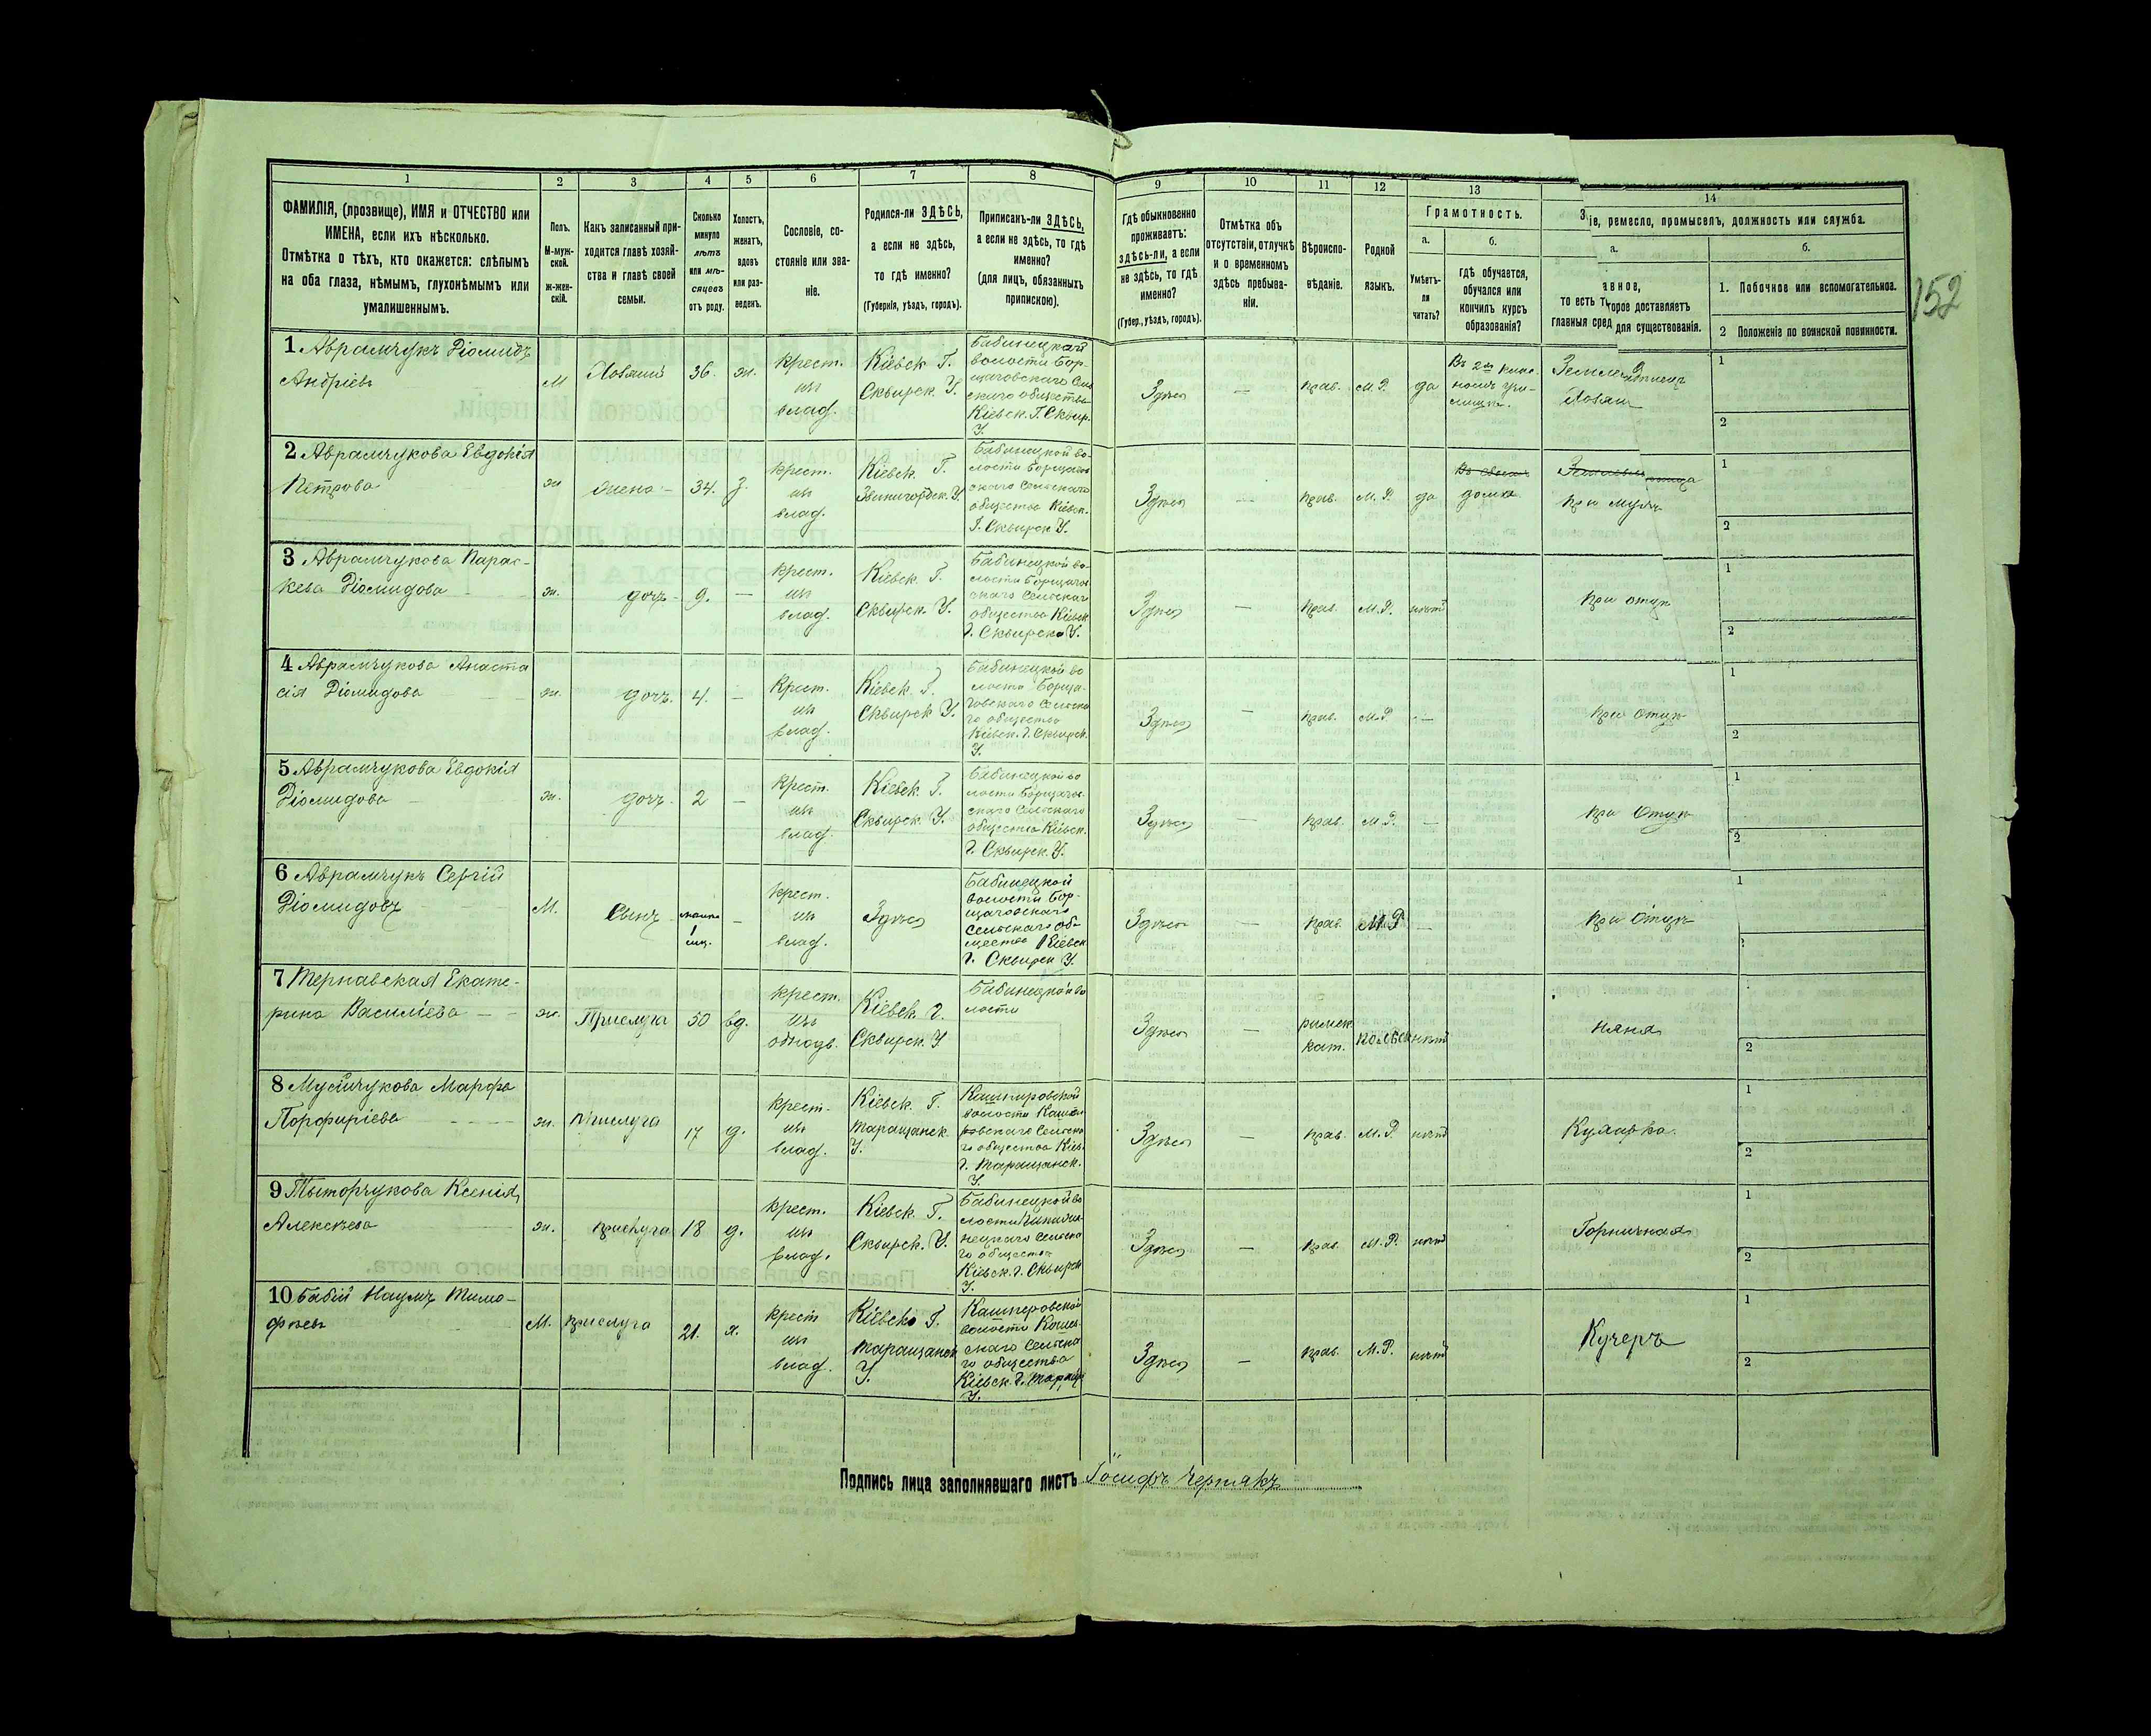 1 2 3 4 5 6 7 8 9 10 11 12 13 14
ФАМИЛІЯ, (прозвище), ИМЯ и ОТЧЕСТВО или
ИМЕНА, если ихъ нѣсколько.
Отмѣтка о тѣхъ, кто окажется: слѣпымъ
на оба глаза, нѣмымъ, глухонѣмымъ или
умалишеннымъ.
Полъ.
М-муж-
ской.
ж-жен-
скій.
Какъ записанный при-
ходится главѣ хозяй-
ства и главѣ своей
семьи.
Сколько
минуло
лѣтъ
или мѣ-
сяцевъ
отъ роду.
Холостъ,
женатъ,
вдовъ
или раз-
веденъ.
Сословіе, со-
стояніе или зва-
ніе.
Родился-ли ЗДѢСЬ,
а если не здѣсь,
то гдѣ именно?
(Губернія, уѣздъ, городъ).
Приписанъ-ли ЗДѢСЬ,
а если не здѣсь, то гдѣ
именно?
(для лицъ, обязанныхъ
припискою).
Гдѣ обыкновенно
проживаетъ:
здѣсь-ли, а если
не здѣсь, то гдѣ
именно?
(Губер., уѣздъ, городъ).
Отмѣтка объ
отсутствіи, отлучкѣ
и о временномъ
здѣсь пребыва-
ніи.
Вѣроиспо-
вѣданіе.
Родной
языкъ.
Грамотность.
а.
Умѣетъ-
ли
читать?
б.
гдѣ обучается,
обучался или
кончилъ курсъ
образованія?
іе, ремесло, промыселъ, должность или служба.
а.
авное,
то есть т
орое доставляетъ
главныя сред
для существованія.
б.
1. Побочное или вспомогательное.
2 Положеніе по воинской повинности.
152
1 Аврамчукъ Діомидъ
Андріевъ
М
Хозяинъ
36.
ж.
крест.
изъ
влад.
Кіевск. Г.
Сквирск. У.
Бабинецкой
волости Бор-
щаговскаго Сель
скаго общества
Кіевск. Г. Сквир.
У.
Здѣсь
—
прав.
М. Р.
да
Въ 2хъ клас.
номъ учи-
лищѣ.
Земледѣлецъ
Хозяинъ
1
2
2 Аврамчукова Евдокія
Петрова
ж
жена
34.
з.
крест.
изъ
влад.
Кіевск. Г.
Звенигородск. У.
Бабинецкой во-
лости Борщагов
скаго Сельскаго
общества Кіевск.
Г. Сквирск. У.
Здѣсь
—
прав.
М. Р.
да
дома
при мужѣ
1
2
3 Аврамчукова Парас-
кева Діомидова
ж.
дочь
9.
—
крест.
изъ
влад.
Кіевск. Г.
Сквирск. У.
Бабинецкой во-
лости Борщагов
скаго Сельскаго
общества Кіевск
г. Сквирско У.
Здѣсь
—
прав.
М. Р.
нѣтъ
при отцѣ
1
2
4 Аврамчукова Анаста
сія Діомидова
ж.
дочь.
4.
—
Крест.
изъ
влад.
Кіевск. Г.
Сквирск У.
Бабинецкой во
лости Борща-
говскаго Сельска
го общества
Кіевск. г. Сквирск.
У.
Здѣсь
—
прав.
М. Р.
—
при отцѣ
1
2
5 Аврамчукова Евдокія
Діомидова
ж.
дочь.
2
—
Крест.
изъ
влад.
Кіевск. Г.
Сквирск. У.
Бабинецкой во
лости Борщагов-
скаго Сельскаго
общества Кіевск.
г. Сквирск. У.
Здѣсь
—
прав.
М. Р.
—
при Отцѣ
1
2
6 Аврамчукъ Сергій
Діомидовъ
М.
Сынъ
—
крест.
изъ
влад.
Здѣсь
Бабинецкой
волости Бор-
щаговскаго
Сельскаго об-
щества Кіевск
г. Сквирск У.
Здѣсь
—
прав.
М. Р
—
при Отцѣ
1
2
7 Тернавская Екате-
рина Василіева
ж.
Прислуга
50
вд.
крест.
изъ
однодв.
Кіевск. г.
Сквирск. У.
Бабинецкой во
лости
Здѣсь
—
римск.
кат.
польск.
нѣтъ
няня
2
8 Мусійчукова Марфа
Порфиріева
ж.
прислуга
17
д.
крест.
изъ
влад.
Кіевск. Г.
Таращанск.
У.
Кашперовской
волости Кашпе
ровскаго Сельска
го общества Кіев.
г. Таращанск.
У.
Здѣсь
—
прав.
М. Р.
нѣтъ
Кухарка.
1
2
9 Тыторчукова Ксенія
Алексѣева
ж.
прислуга
18
д.
крест.
изъ
влад.
Кіевск. Г.
Сквирск. У.
Бабинецкой во
нецкаго Сельска
го общества
Кіевск. г. Сквирск
У.
Здѣсь
—
прав.
М. Р.
нѣтъ
Горничная
1
2
10 Бабій Наумъ Тимо-
фѣевъ
М.
прислуга
21.
х.
крест
изъ
влад.
Кіевско Г.
Таращанск
У.
Кашперовской
волости
скаго Сельска
го общества
Кіевск. г. Таращ.
У.
Здѣсь
—
прав.
М. Р.
нѣтъ
Кучеръ
1
2
Подпись лица заполнявшаго листъ Іосифъ Чернякъ